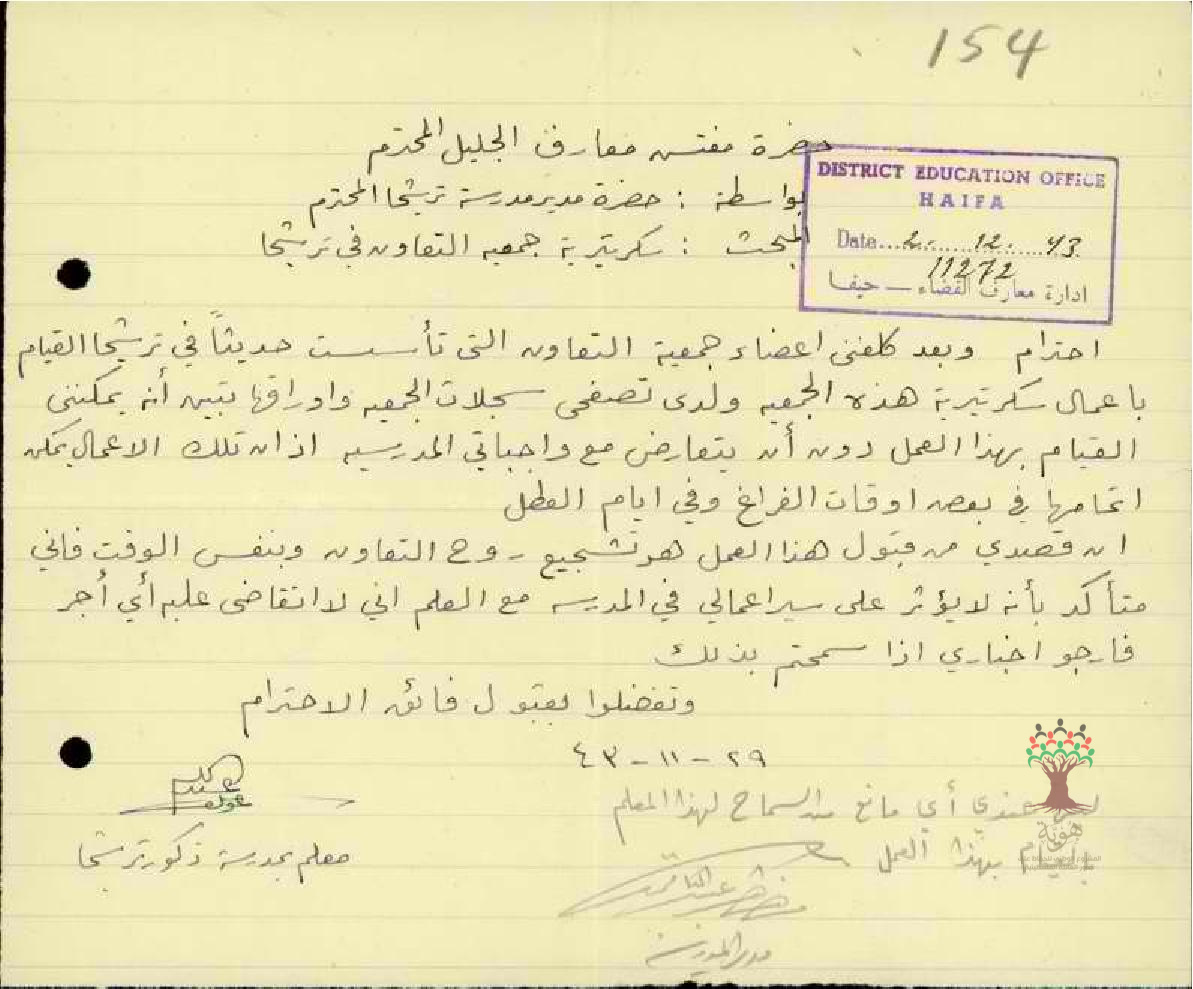 154
حضرة مفتش معارف الجليل المحترم
DISTRICT EDUCATION OFFICE
HAIFA
Date... 2. 12. 43
11272
ادارة معارف القضاء — حيفا
بواسطة : حضرة مدير مدرسة ترشيحا المحترم
المبحث : سكرتيرية جمعيه التعاون في ترشيحا
احترام وبعد كلفني اعضاء جمعية التعاون التي تأسست حديثاً في ترشيحا القيام
باعمال سكرتيرية هذه الجمعيه ولدى تصفحي سجلات الجمعيه واوراقها تبين أنه يمكنني
القيام بهذا العمل دون أن يتعارض مع واجباتي المدرسيه اذ ان تلك الاعمال يمكن
اتمامها في بعض اوقات الفراغ وفي ايام العطل
ان قصدي من قبول هذا العمل هو تشجيع روح التعاون وبنفس الوقت فاني
متأكد بأنه لا يؤثر على سير اعمالي في المدرسه مع العلم اني لا اتقاضى عليه أي أجر
فارجو اخباري اذا سمحتم بذلك
وتفضلوا بقبول فائق الاحترام
٢٩ - ١١ - ٤٣
معلم بمدرسة ذكور ترشيحا
ليس عندي أي مانع من السماح لهذا المعلم
بالقيام بهذا العمل
مدير المدرسة
هوية